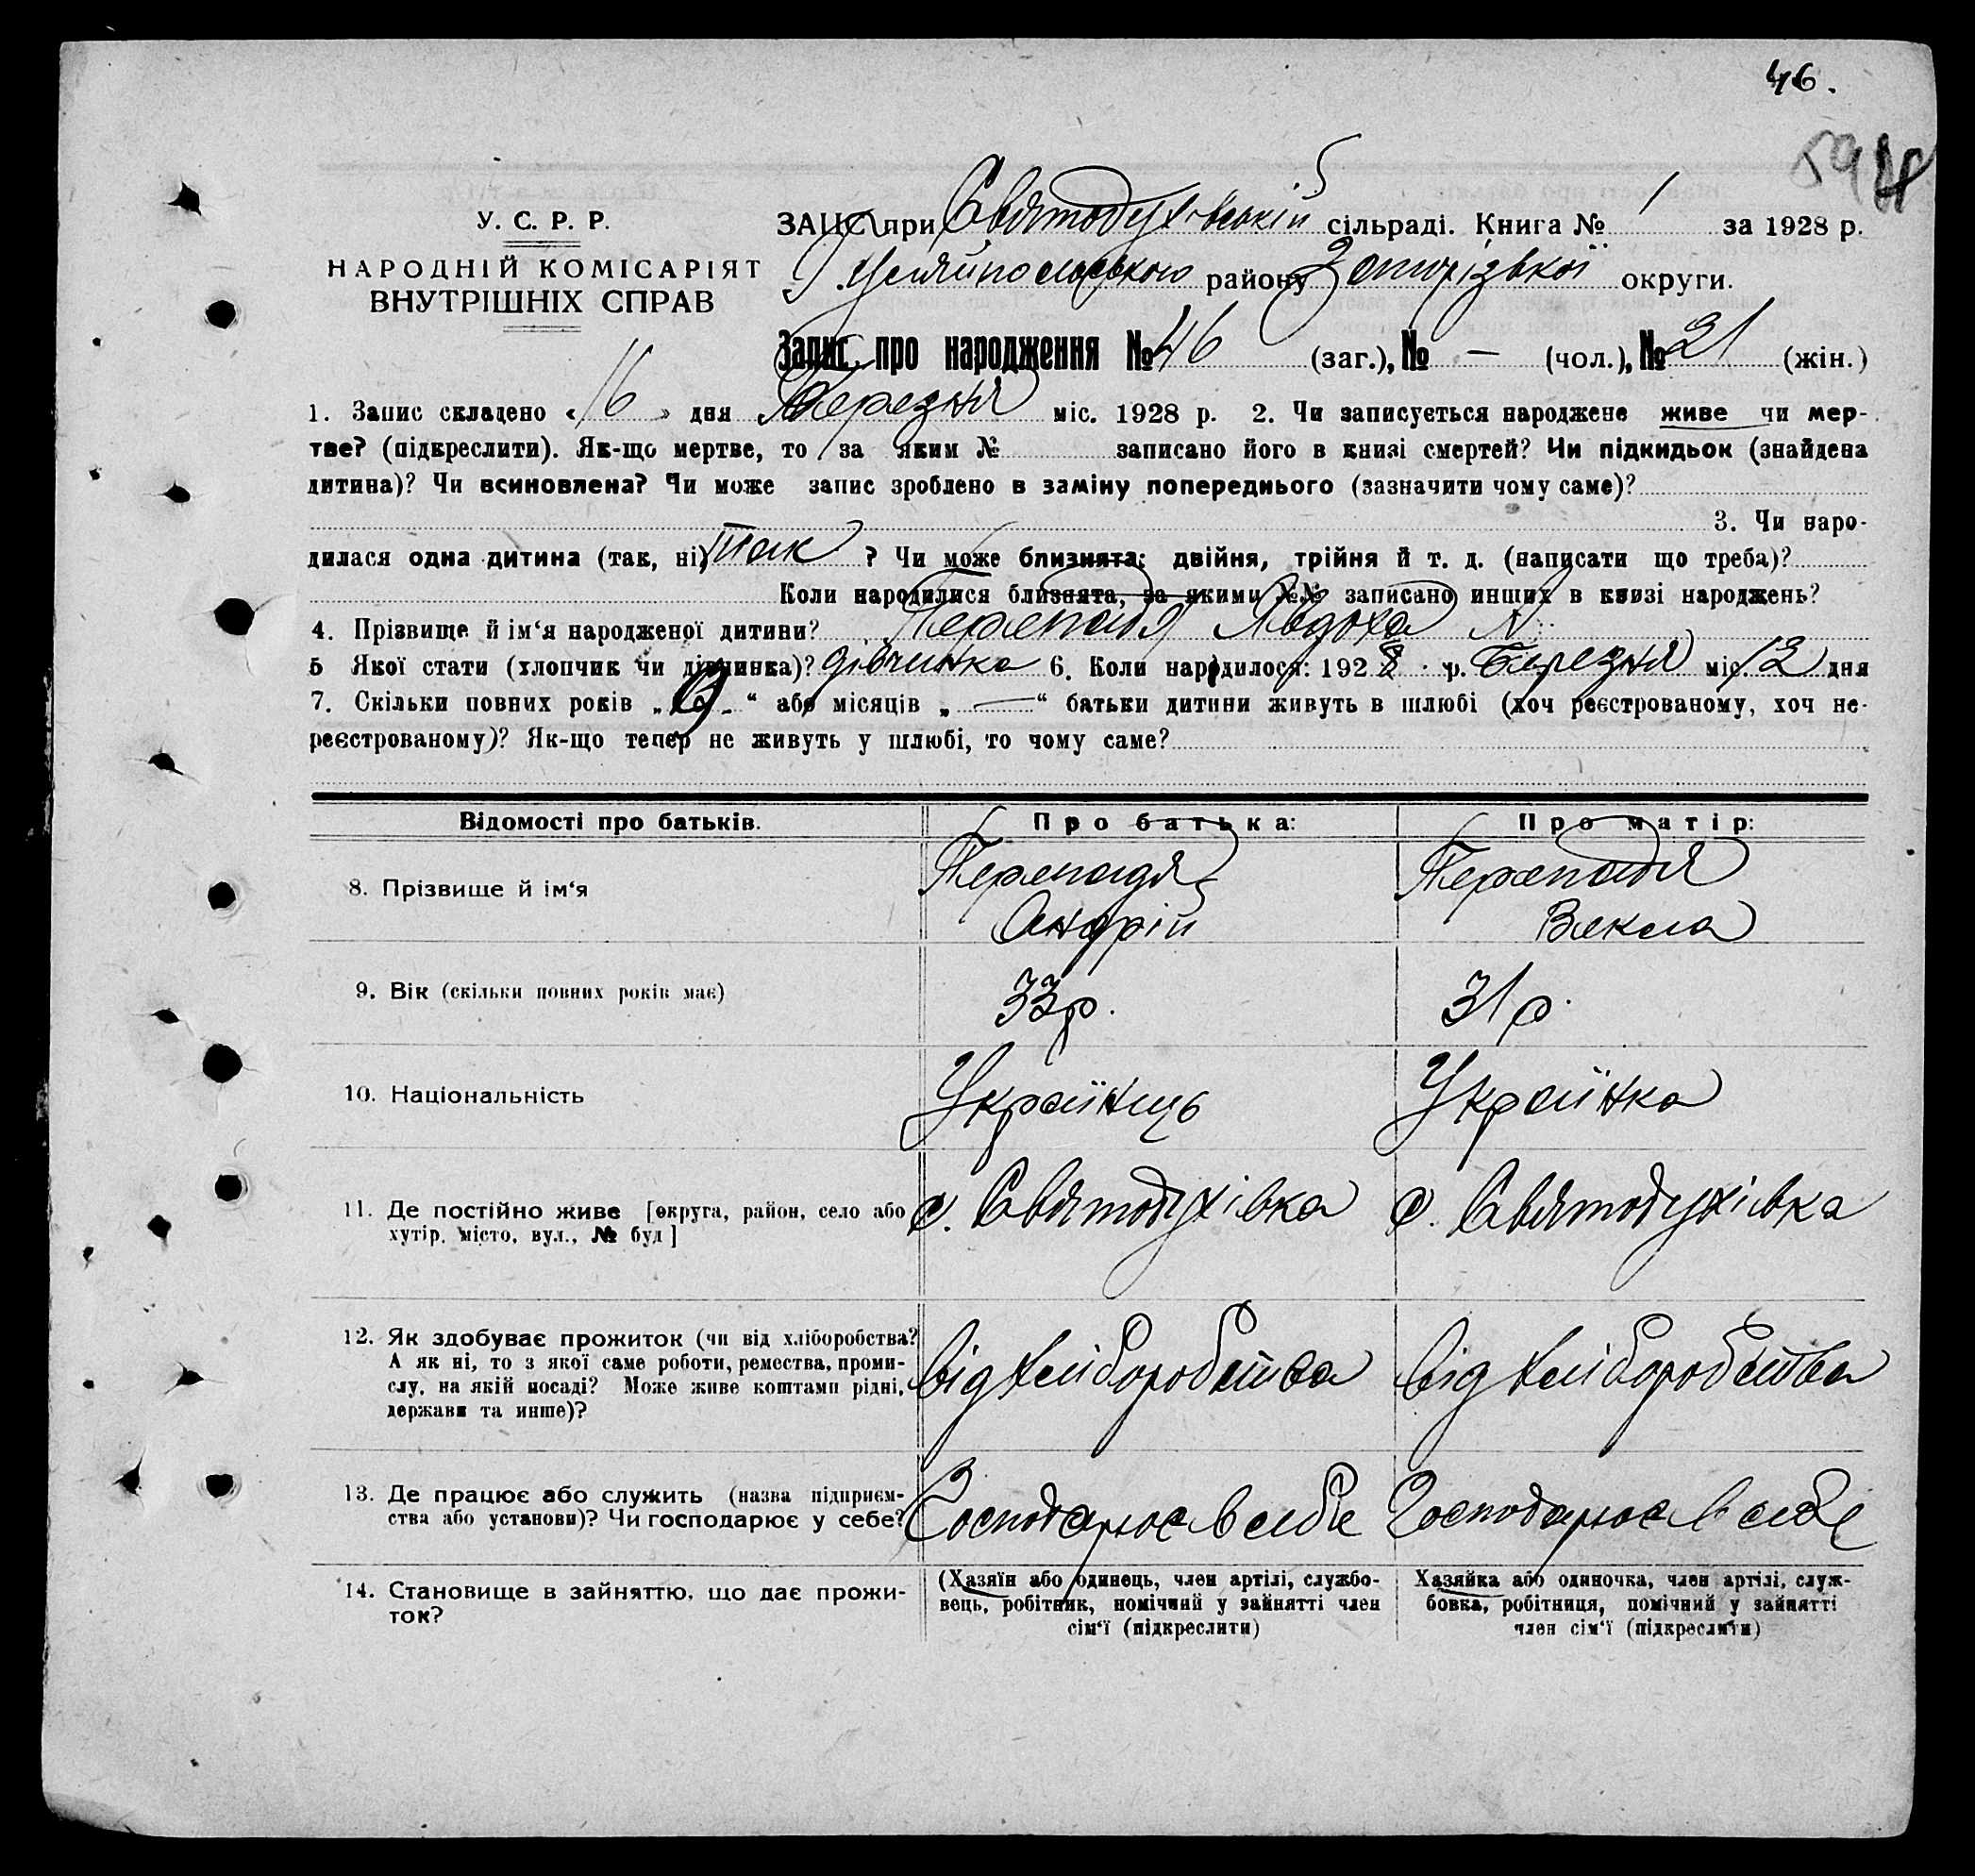 46.
У. С. Р. Р.
НАРОДНІЙ КОМІСАРІЯТ
ВНУТРІШНІХ СПРАВ
ЗАЦС при Святодухівській сільраді. Книга № 1 за 1928 р.
Гуляйпольського району Запорізької округи.
Запис про народження № 46 (заг.), № — (чол.), № 21 (жін.)
1. Запис складено « 16 » дня Березня міс. 1928 р. 2. Чи записується народжене живе чи мер-
тве? (підкреслити). Як-що мертве, то за яким № записано його в книзі смертей? Чи підкидьок (знайдена
дитина)? Чи всиновлена? Чи може запис зроблено в заміну попереднього (зазначити чому саме)?
3. Чи наро-
дилася одна дитина (так, ні) Так ? Чи може близнята: двійня, трійня й т. д. (написати що треба)?
Коли народилися близнята, за якими №№ записано инших в книзі народжень?
4. Прізвище й ім‘я народженої дитини? Перепадя Явдоха
5 Якої стати (хлопчик чи дівчинка)? дівчинка 6. Коли народилося: 1928 р. Березня міс. 12 дня
7. Скільки повних років „ “ або місяців „ — “ батьки дитини живуть в шлюбі (хоч реєстрованому, хоч не-
реєстрованому)? Як-що тепер не живуть у шлюбі, то чому саме?
Відомості про батьків. Про батька: Про матір:
8. Прізвище й ім‘я Перепадя Андрій Перепадя Векла
9. Вік (скільки повних років має) 33 р. 31 р.
10. Національність Українць Українка
11. Де постійно живе [округа, район, село або
хутір, місто, вул., № буд] с. Святодухівка с. Святодухівка
12. Як здобуває прожиток (чи від хліборобства?
А як ні, то з якої саме роботи, ремества, проми-
слу, на якій посаді? Може живе коштами рідні,
держави та инше)? від хліборобства від хліборобства
13. Де працює або служить (назва підприєм-
ства або установи)? Чи господарює у себе? Господарює в себе Господарює в себе
14. Становище в зайняттю, що дає прожи-
ток?
(Хазяїн або одинець, член артілі, службо-
вець, робітник, помічний у зайнятті член
сім‘ї (підкреслити)
Хазяйка або одиночка, член артілі, служ-
бовка, робітниця, помічний у зайнятті
член сім‘ї (підкреслити)